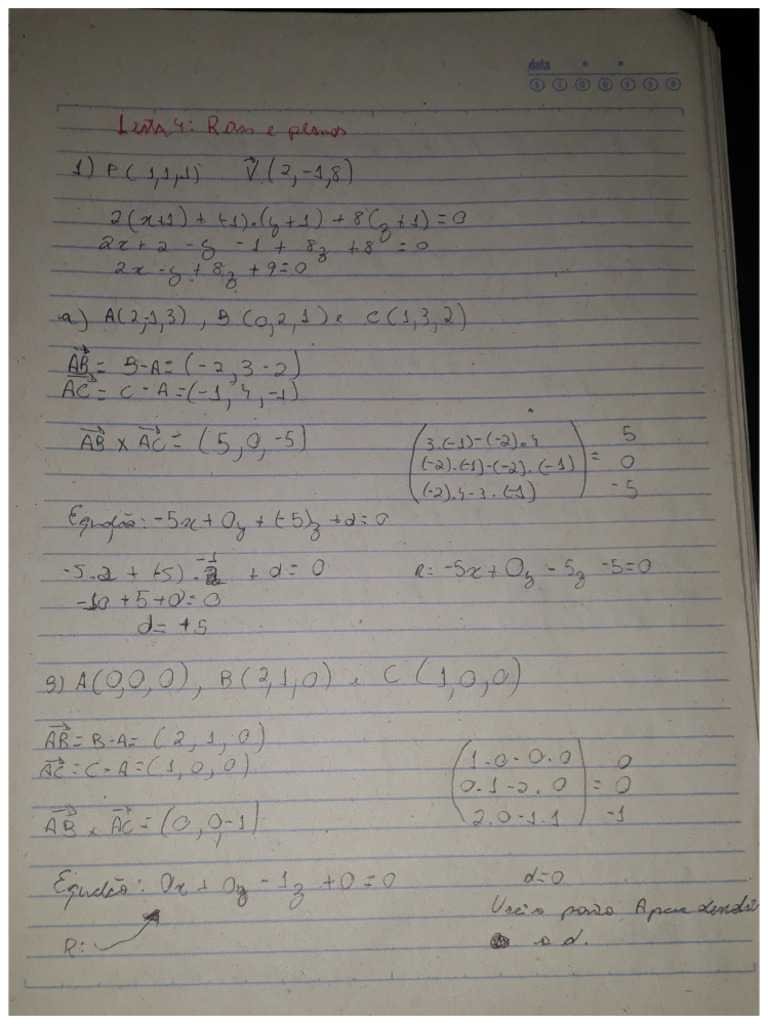 data
S T Q Q S S D
Lista 4: Retas e planos
1) P(1,1,1) V⃗(2,-1,8)
2(x+1) + (-1).(y+1) + 8(z+1) = 0
2x + 2 - y - 1 + 8z + 8 = 0
2x - y + 8z + 9 = 0
a) A(2,-1,3), B(0,2,1) e C(1,3,2)
AB⃗ = B-A = (-2, 3 -2)
AC⃗ = C - A = (-1, 4, -1)
AB⃗ x AC⃗ = (5, 0, -5)
3.(-1)-(-2).4 5
(-2).(-1)-(-2).(-1) = 0
(-2).4-3.(-1) -5
Equação: -5x + 0y + (-5)z + d = 0
-5.2 + (-5).-1 + d = 0 R: -5x + 0y - 5z - 5 = 0
-10 + 5 + d = 0
d = +5
A(0,0,0), B(2,1,0) e C(1,0,0)
AB⃗ = B-A = (2, 1, 0)
AC⃗ = C-A = (1, 0, 0)
AB⃗ x AC⃗ = (0, 0, -1)
1.0 - 0.0 0
0.1 - 2.0 = 0
2.0 - 1.1 -1
Equação: 0x + 0y - 1z + 0 = 0 d=0
R:
A para
o d.